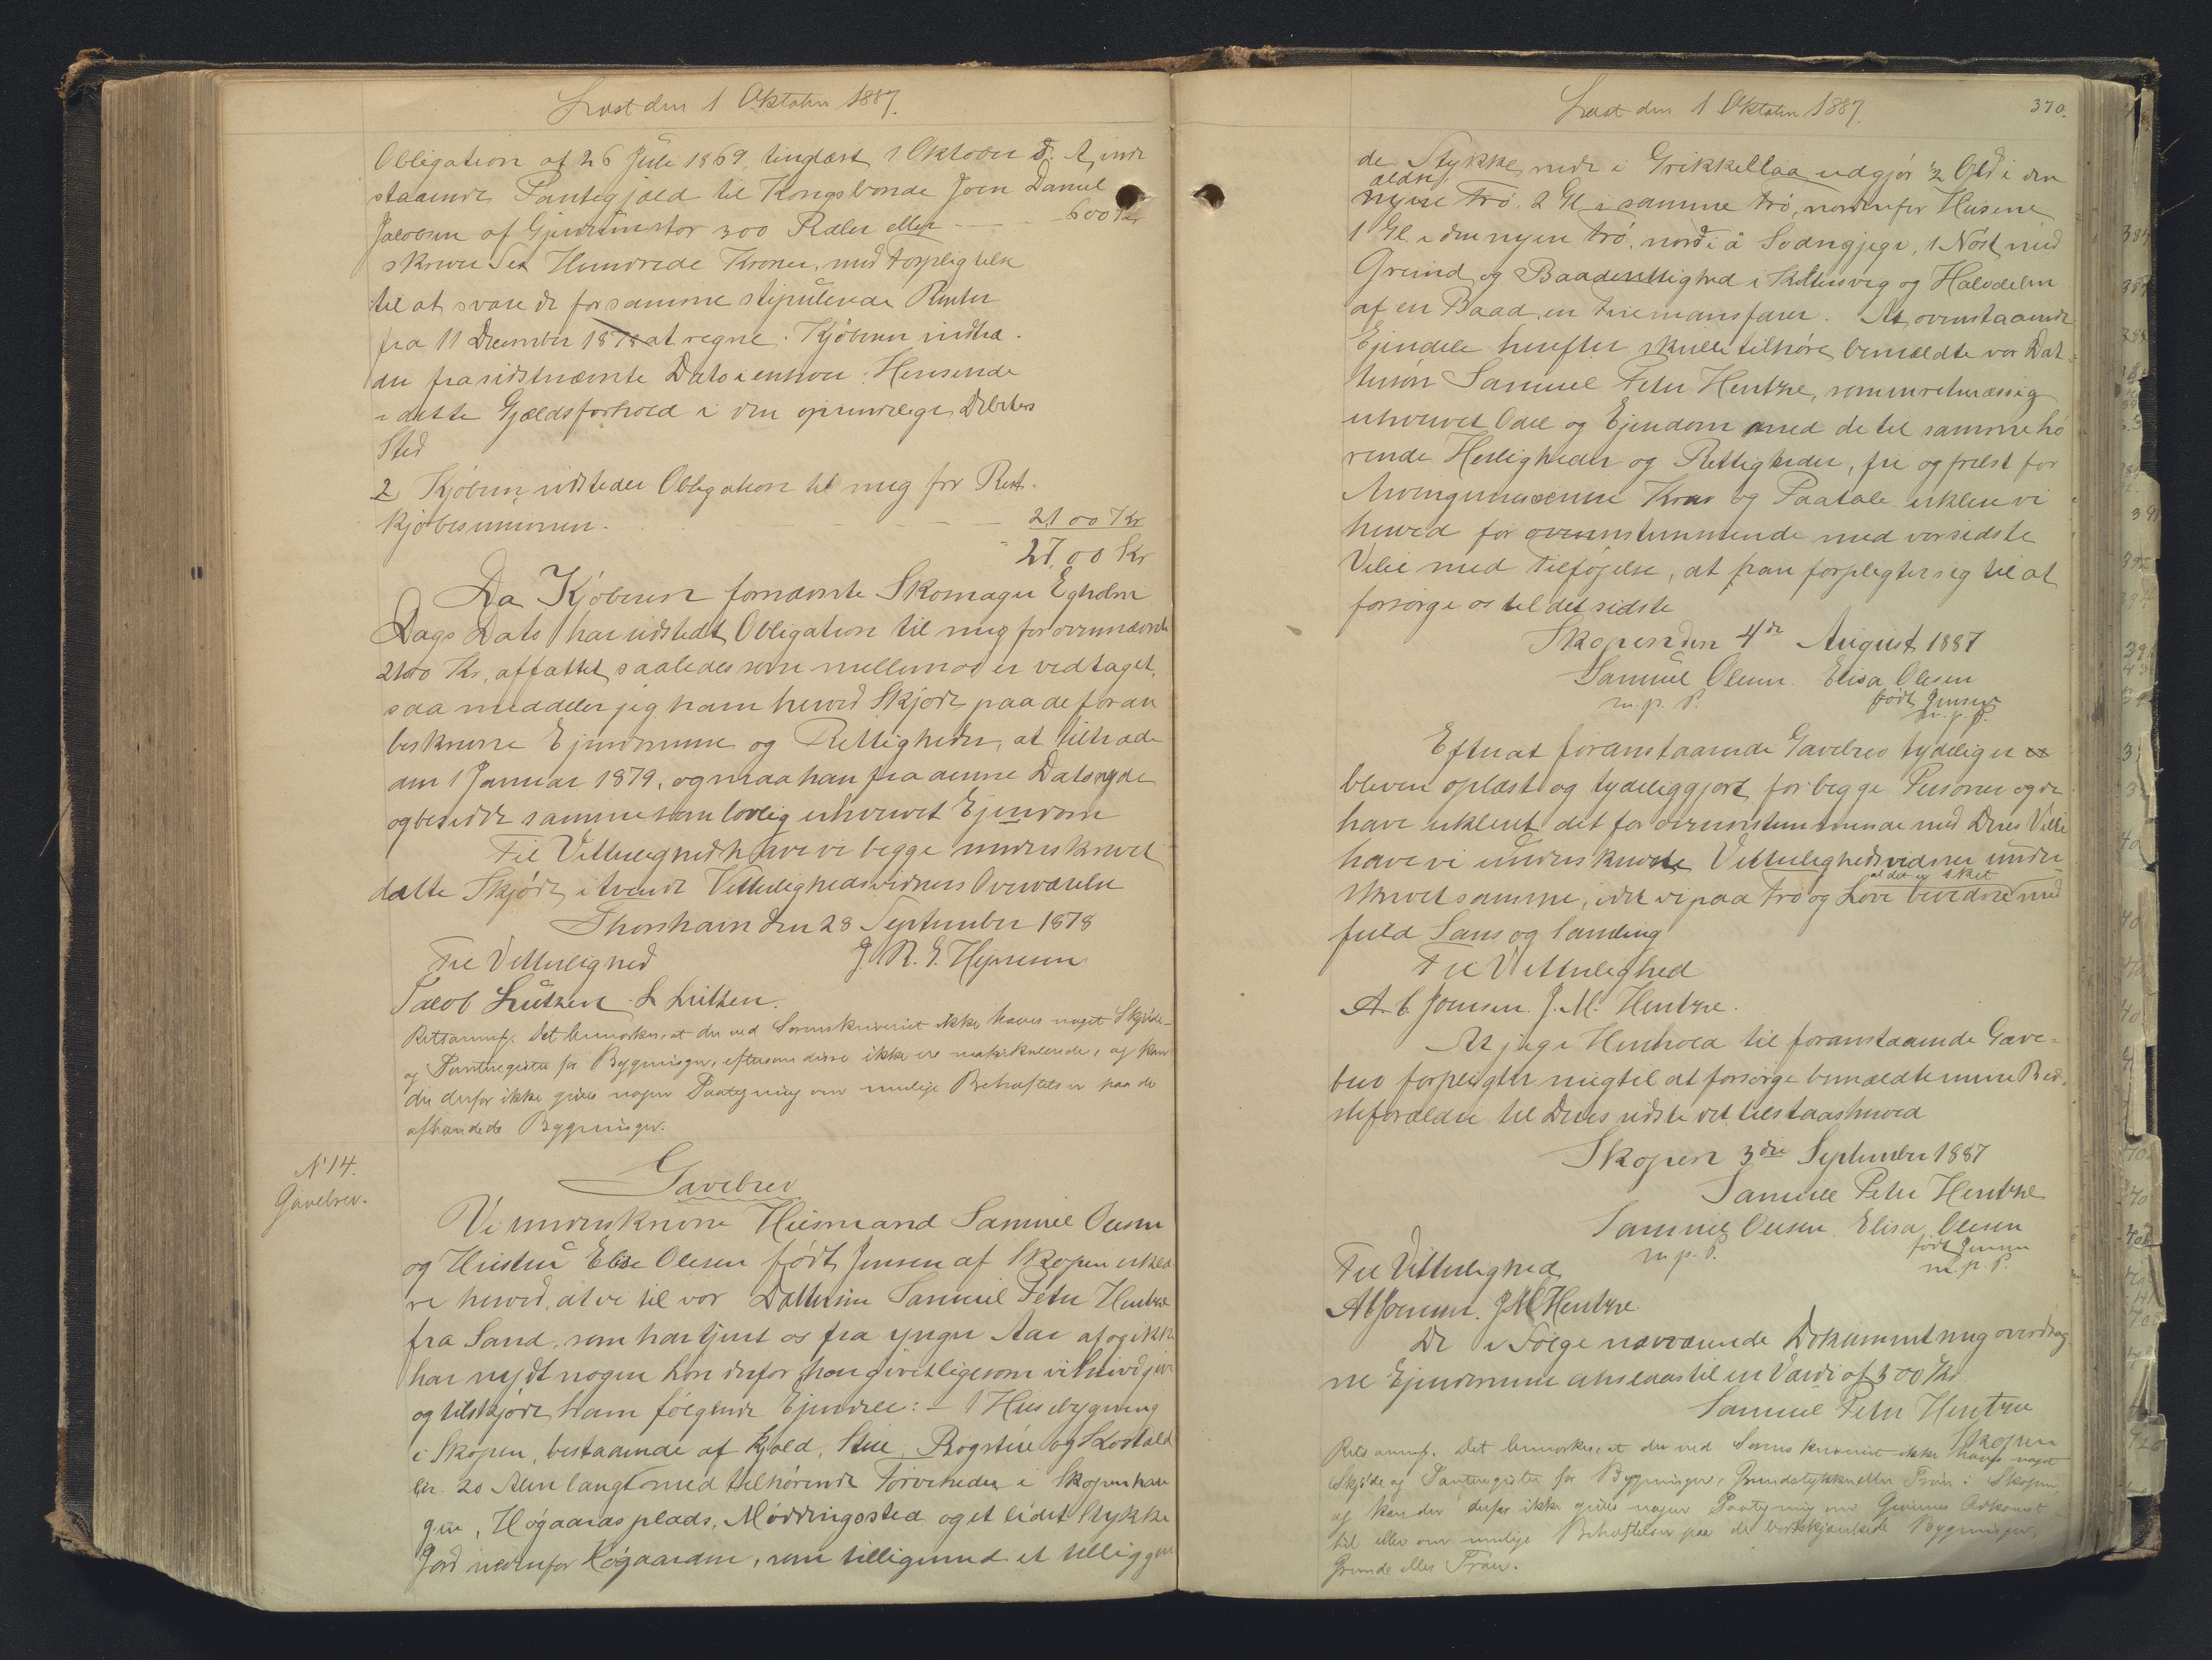 Læst den 1 Oktober 1887.
Obligation af 26 Juli 1869, tinglæst 1 Oktober d. A, inde
staaende Pantegjæld til Kongsbonde Joen Daniel
Jacobsen af 300 Rdler eller 600 Kr
skriver Sex Hundrede Kroner, med Forpligtelse
til at svare de for samme stipulerede Renter
fra 11 December 1878 at regne. Kjøberen indtræ-
der fra sidstnævnte Dato i enhver Henseende
i dette Gjældsforhold i den oprindelige Debitors
Sted
2, Kjøberen udsteder Obligation til mig for Rest-
kjøbesummen. 2100 Kr
2700 Kr
Da Kjøberen fornævnte Skomager Egholm
Dags Dato har udstedt Obligation til mig for ovennævnte
2100 Kr, affattet saaledes som mellem os er vedtaget,
saa meddeler jeg ham herved Skjøde paa de foran
beskrevne Ejendomme og Rettigheder, at tiltræde
den 1 Januar 1879, og maa han fra denne Dato nyde
og besidde samme som lovlig erhvervet Ejendom
Til Vitterlighed have vi begge underskrevet
dette Skjøde i tvende Vitterlighedsvidners Overværelse
Thorshavn den 28 September 1878
Til Vitterlighed J. R. G.
Jacob Lützen. L Lützen.
Retsanmf. Det bemærkes, at der ved Sorenskriveriet ikke haves noget Skjøde-
og Panteregister for Bygninger, eftersom disse ikke ere matrikulerede, og kan
der derfor ikke gives nogen Paategning om mulige Behæftelser paa de
afhændede Bygninger.
N° 14.
Gavebrev.
Gavebrev
Vi underskrevne Huusmand Samuel Olesen
og Hustru Elise Olesen født Jensen af Skopen erklæ
re herved, at vi til vor Dattersøn Samuel Peter Hentze
fra Sand, som har tjent os fra yngre Aar af og ikke
har nydt nogen Løn derfor, have givet ligesom vi herved give
og tilskjøde ham følgende Ejendele: – 1 Husebygning
i Skopen, bestaaende af Kjæld, Stue, Rogstue og
20 Alen langt med tilhørende Tørveheder i Skopenhau
gen, Høgaardsplads, Møddingsted og et lidet Stykke
Jord nedenfor Høgaarden, som tilligemed et tilliggen
Læst den 1 Oktober 1887. 370.
de Stykke nede i Grikkellaa udgjør ½ Gld i den
ældre
nyere Trø, 2 Gl i samme Trø, nordenfor Husene
1 Gl. i den nyere Trø, nord i å 1 Nøst med
Grund og Baaderettighed i og Halvdelen
af en Baad, en Tremansfarer. At ovenstaaende
Ejendele herefter skulle tilhøre bemældte vor Dat-
tersøn Samuel Peter Hentze, som en retmæssig
erhvervet Odel og Ejendom med de til samme hø
rende Herligheder og Rettigheder, fri og frelst for
Arvingernes Krav og Paatale erklære vi
herved for overensstemmende med vor sidste
Vilie med Tilføjelse, at han forpligter sig til at
forsørge os til det sidste
Skopen den 4de August 1887
Samuel Olesen. Elisa Olesen
m. p. P. født Jensen
m. p. P.
Efterat foranstaaende Gavebrev tydelig er
bleven oplæst og tydeliggjort for begge Personer og de
have erklæret det for overensstemmende med Deres Villie
have vi underskrevne Vitterlighedsvidner under-
at det er sket
skrevet samme, idet vi paa Tro og Love bevidne med
fuld Sans og Samling
Til Vitterlighed
A. C. Joensen. J. M. Hentze.
At jeg i Henhold til foranstaaende Gave-
brev forpligter mig til at forsørge bemældte mine Bed-
steforældre til Deres sidste det tilstaas herved
Skopen 3die September 1887
Samuel Peter Hentze
Samuel Olesen. Elisa Olesen
m. p. P. født Jensen
m. p. P.
Til Vitterlighed
A C Joensen. J M Hentze.
De i Følge nærværende Dokument mig overdrag
ne Ejendomme anslaas til en Værdi af 300 Kr
Samuel Peter Hentze
Skopen
Retsanmf. Det bemærkes, at der ved Sorenskriveriet ikke haves noget
Skjøde og Panteregister for Bygninger, Grundstykker eller Trøer i Skopen,
og kan der derfor ikke gives nogen Paategning om Givernes Adkomst
til eller om mulige Behæftelser paa de bortskjænkede Bygninger,
Grunde eller Trøer.